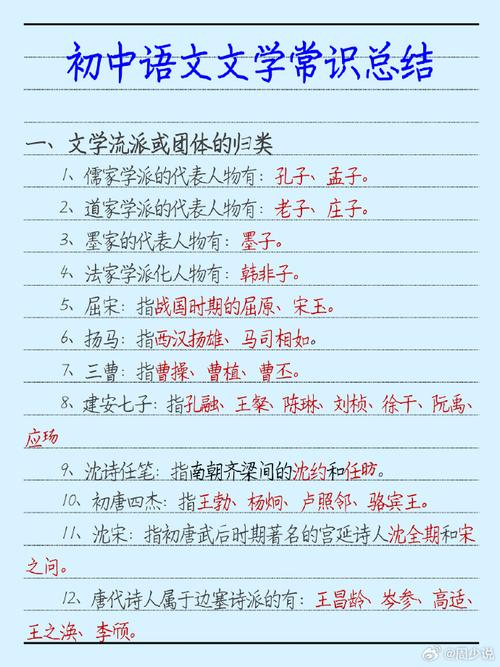 初中语文文学常识总结
一、文学流派或团体的归类
1、儒家学派的代表人物有：孔子、孟子。
2、道家学派的代表人物有：老子、庄子。
3、墨家的代表人物有：墨子。
4、法家学派化人物有：韩非子。
5、屈宋：指战国时期的屈原、宋玉。
6、扬马：指西汉扬雄、马司相如。
7、三曹：指曹操、曹植、曹丕。
8、建安七子：指孔融、王粲、陈琳、刘桢、徐干、阮禹、
应玚
9、沈诗任笔：指南朝齐梁间的沈约和任昉。
10、初唐四杰：指王勃、杨炯、卢照邻、骆宾王。
11、沈宋：指初唐武后时期著名的宫延诗人沈全期和宋
之问。
12、唐代诗人属于边塞诗派的有：王昌龄、岑参、高适、
王之涣、李颀。
@周少说